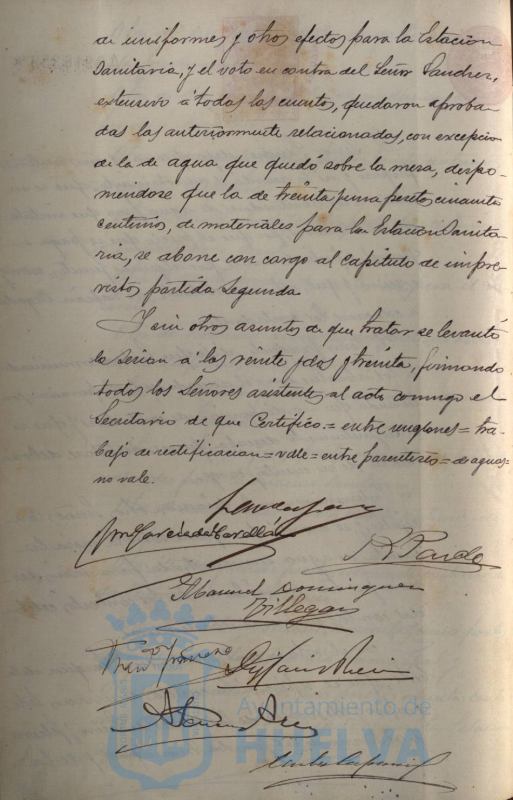 de uniformes y otros efectos para la Estación
Sanitaria, y el voto en contra del Señor Sanchez,
extensivo á todas las cuentas, quedaron aproba-
das las anteriormente relacionadas, con excepcion
de la de agua que quedó sobre la mesa, dispo-
niendose que la de treinta y una pesetas cincuenta
centimos, de materiales para la Estación Sanita-
ria, se abone con cargo al capitulo de impre-
vistos partida Segunda.
Y sin otros asuntos de que tratar se levantó
la sesion á las veinte y dos y treinta, firmando
todos los Señores asistentes al acto conmigo el
Secretario de que Certifico.= entre renglones = tra-
bajo de rectificacion = vale = entre parentesis = de aguas =
no vale.
Garcia de
Manuel Dominguez
Villegas
Ayuntamiento de
HUELVA